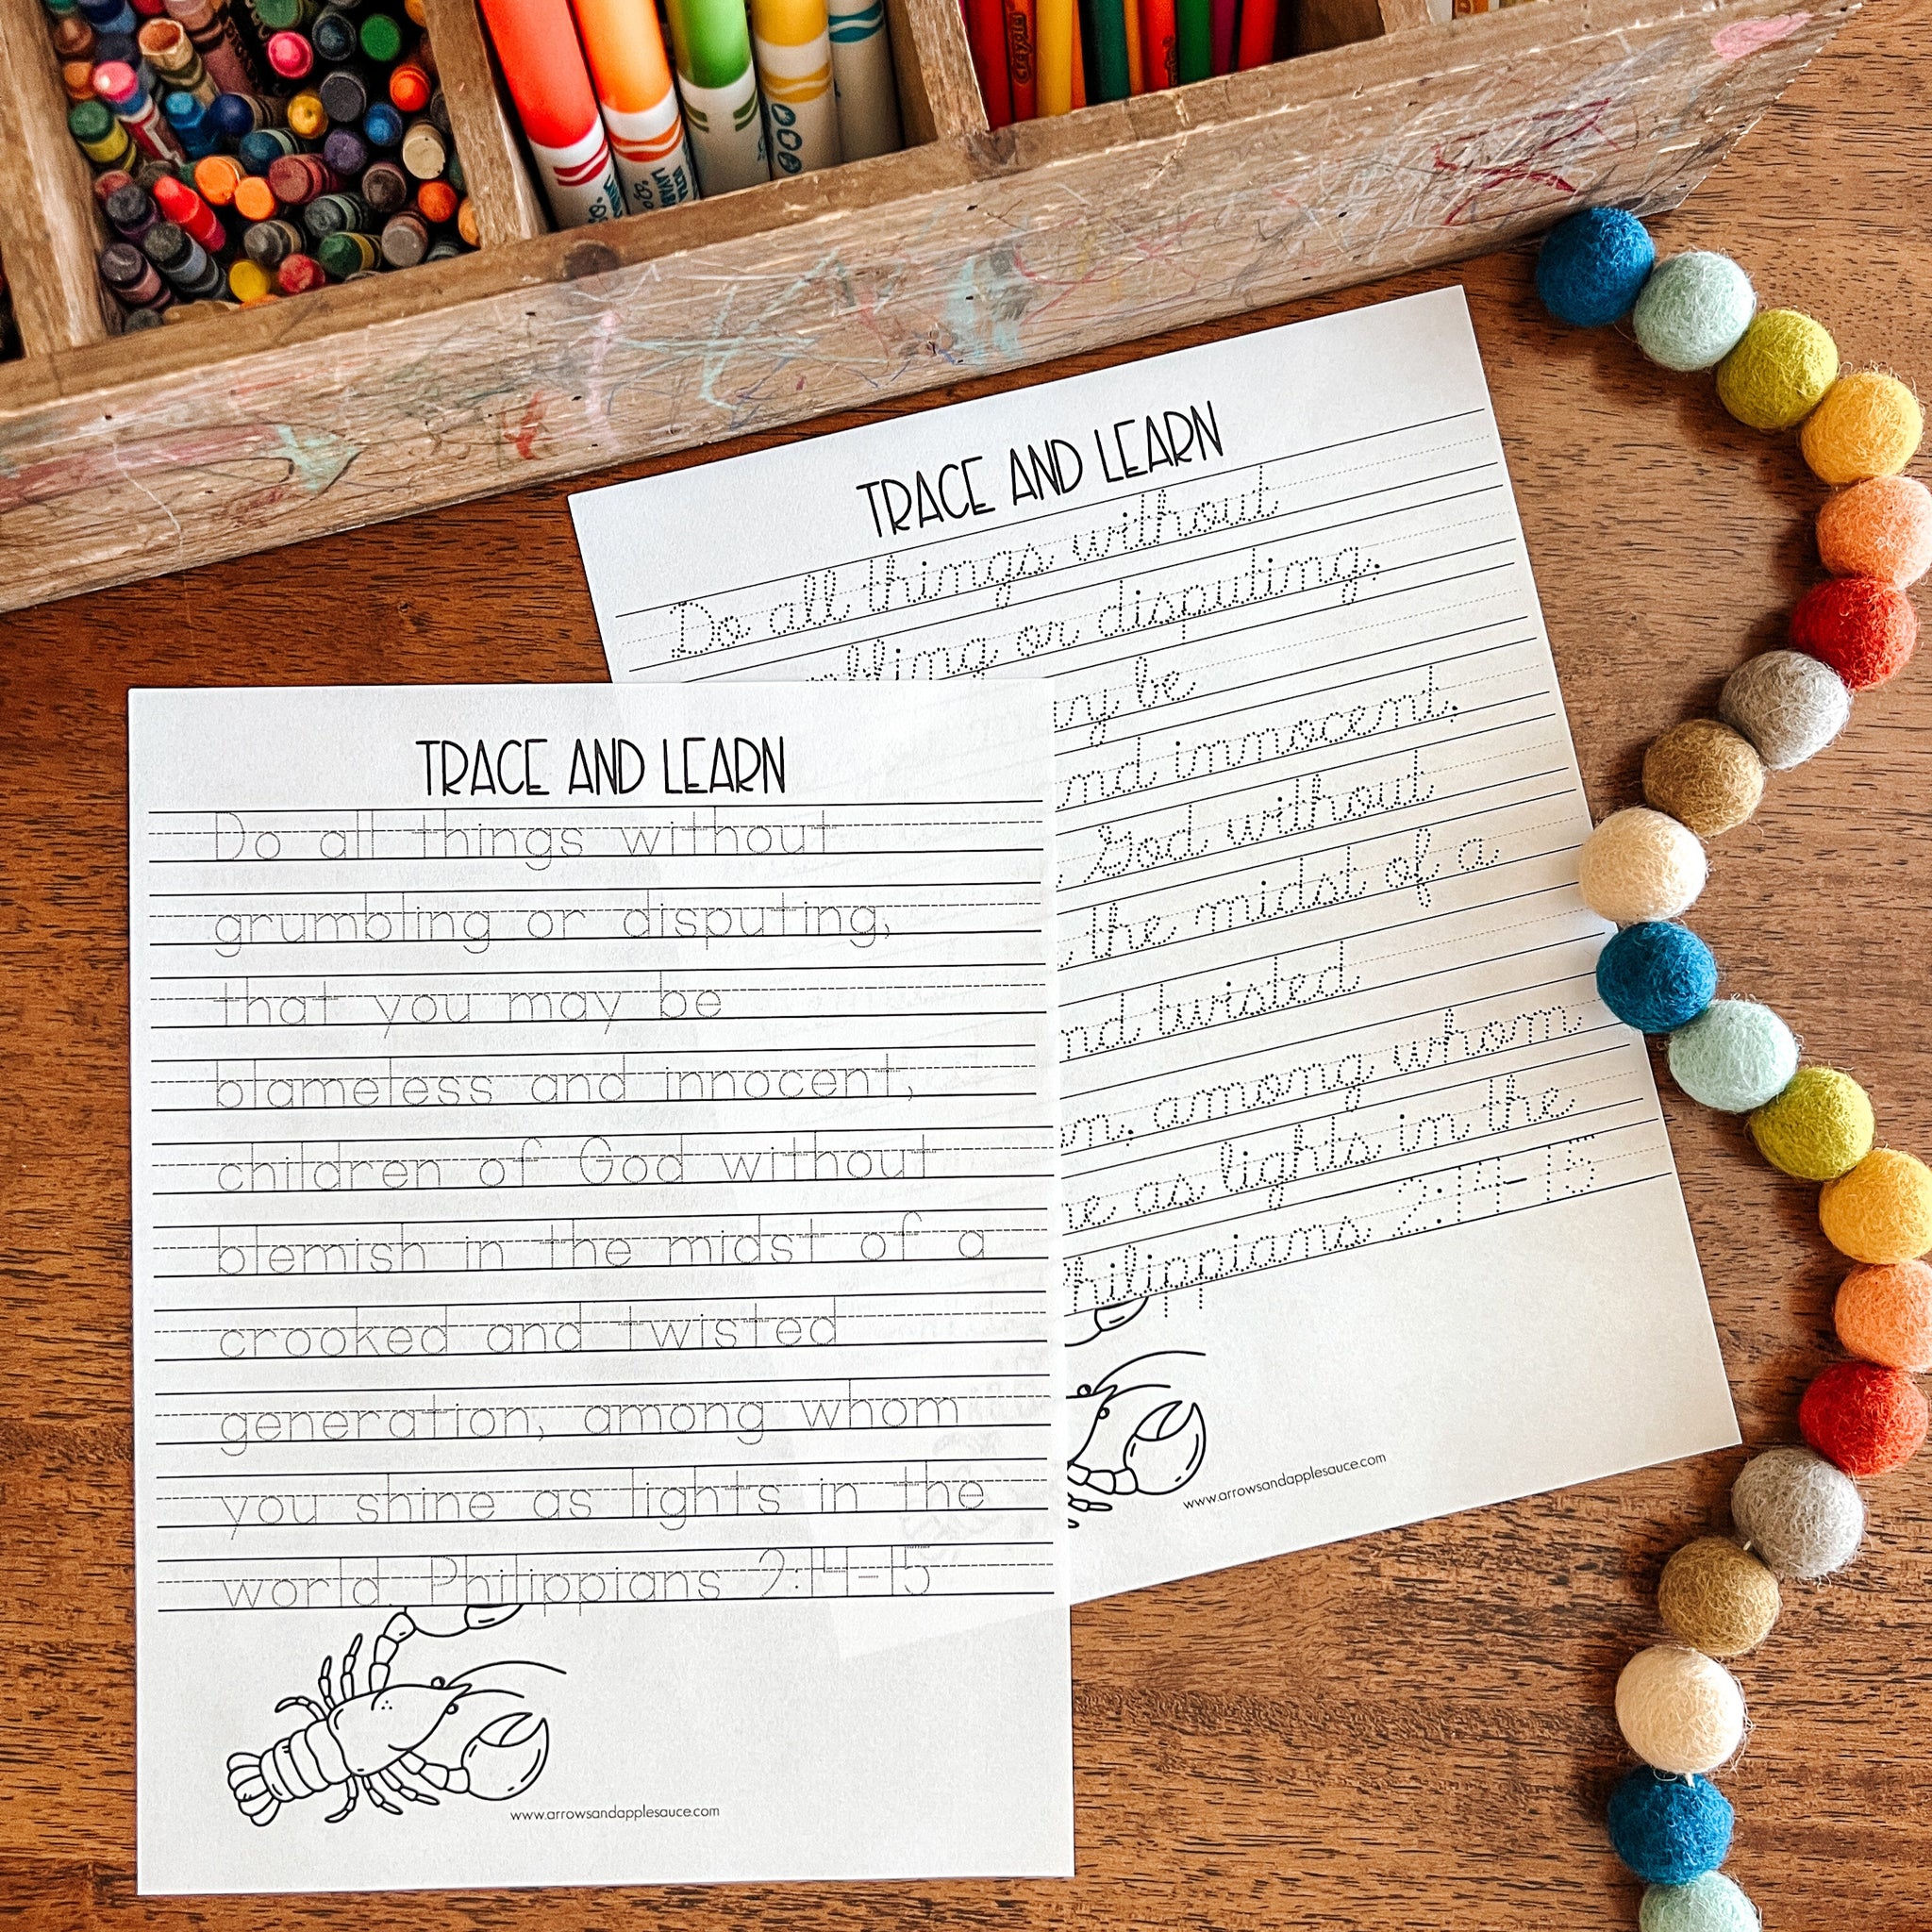 TRACE AND LEARN
Do all things without
grumbling or disputing,
that you may be
blameless and innocent,
children of God without
blemish in the midst of a
crooked and twisted
generation, among whom
you shine as lights in the
world. Philippians 2:14-15
www.arrowsandapplesauce.com
TRACE AND LEARN
Do all things without
mbling or disputing,
ay be
nd innocent,
God without
the midst of a
nd twisted
n, among whom
ne as lights in the
hilippians 2:14-15
www.arrowsandapplesauce.com